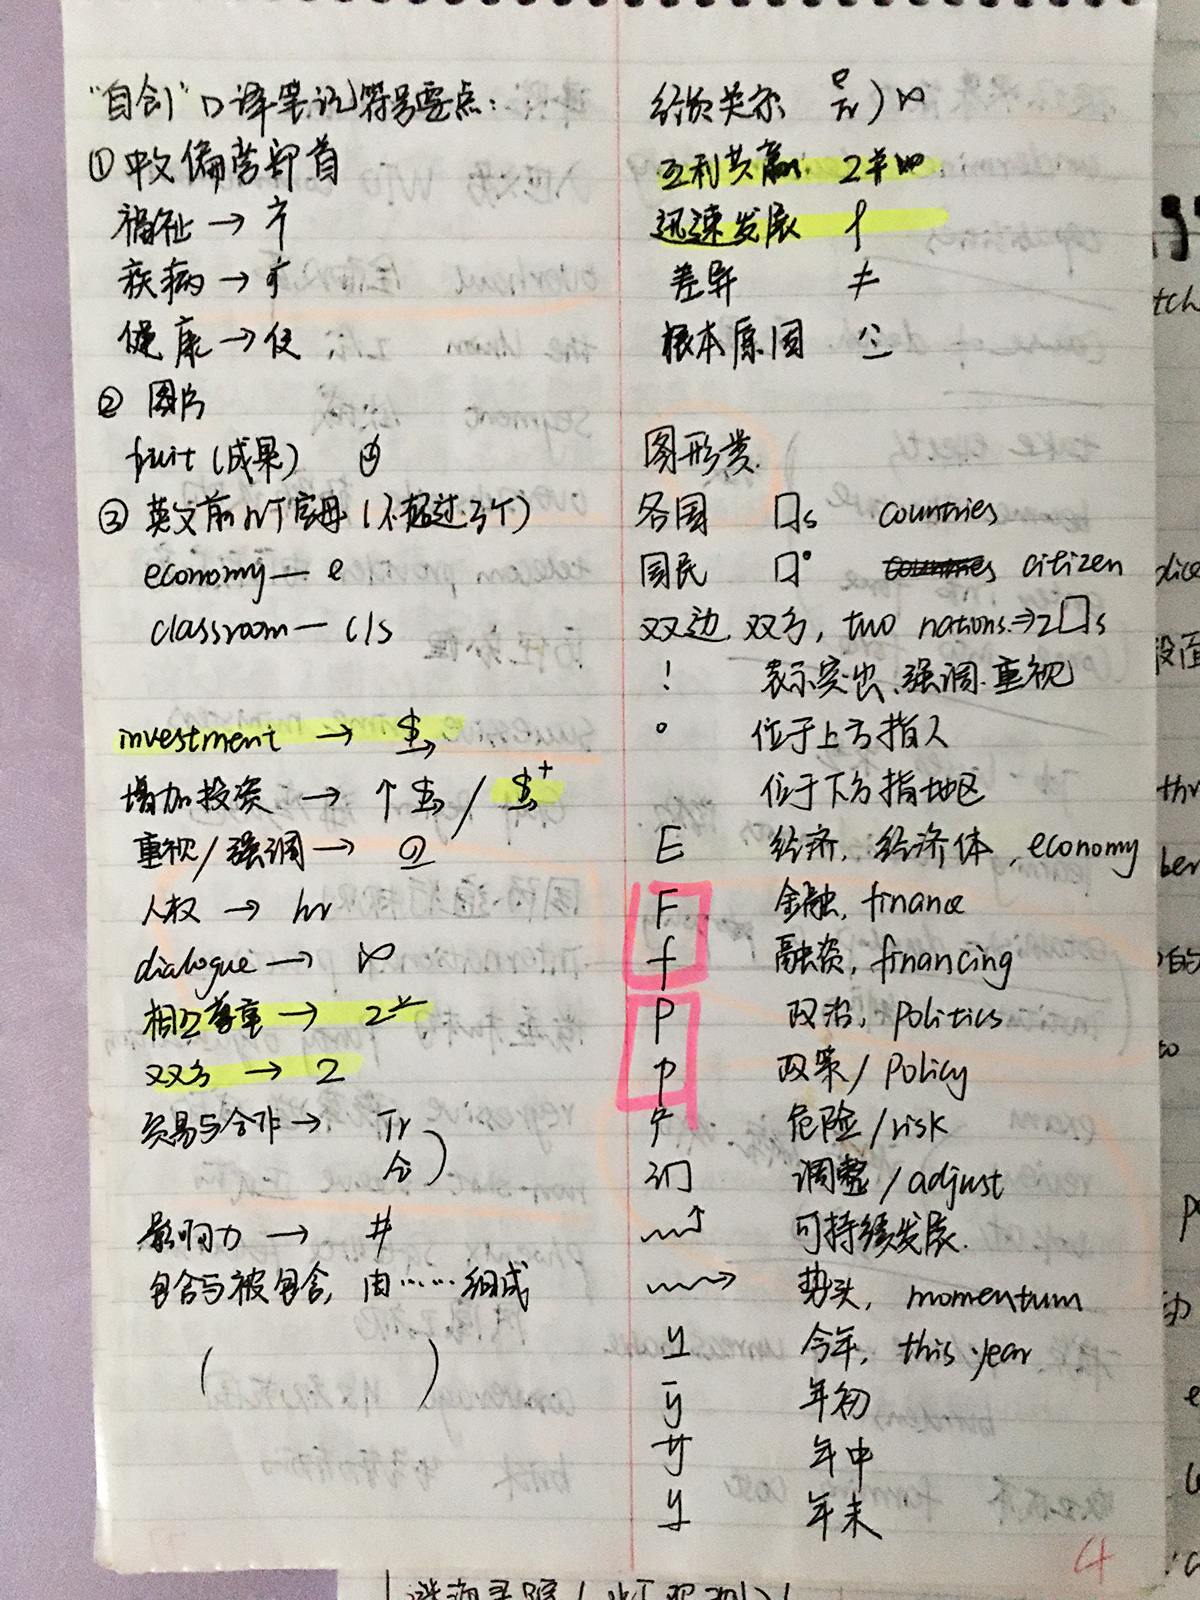 "自创"口译笔记符号要点:
①中文偏旁部首
福祉→礻
疾病→疒
健康→亻
② 图片
fruit(成果)
③ 英文前几个字母(不超过3个)
economy— e
classroom— cls
investment → $
增加投资 → ↑$ / $+
重视/强调→
人权 → hr
dialogue → ∞
相互尊重 → 2
双方 → 2
贸易与合作→ Tr
合 )
影响力 → #
包含与被包含, 由……组成
( )
经贸关系 e Tr ) ∞
互利共赢 2
迅速发展
差异 ≠
根本原因
图形类
各国 □s countries
国民 □° citizen
双边, 双方, two nations⇒2□s
! 表示突出、强调、重视
° 位于上方指人
位于下方指地区
E 经济, 经济体, economy
F 金融, finance
f 融资, financing
P 政治, politics
p 政策/policy
危险/risk
讠门 调整/adjust
可持续发展.
势头, momentum
y 今年, this year
y 年初
y 年中
y 年末
4